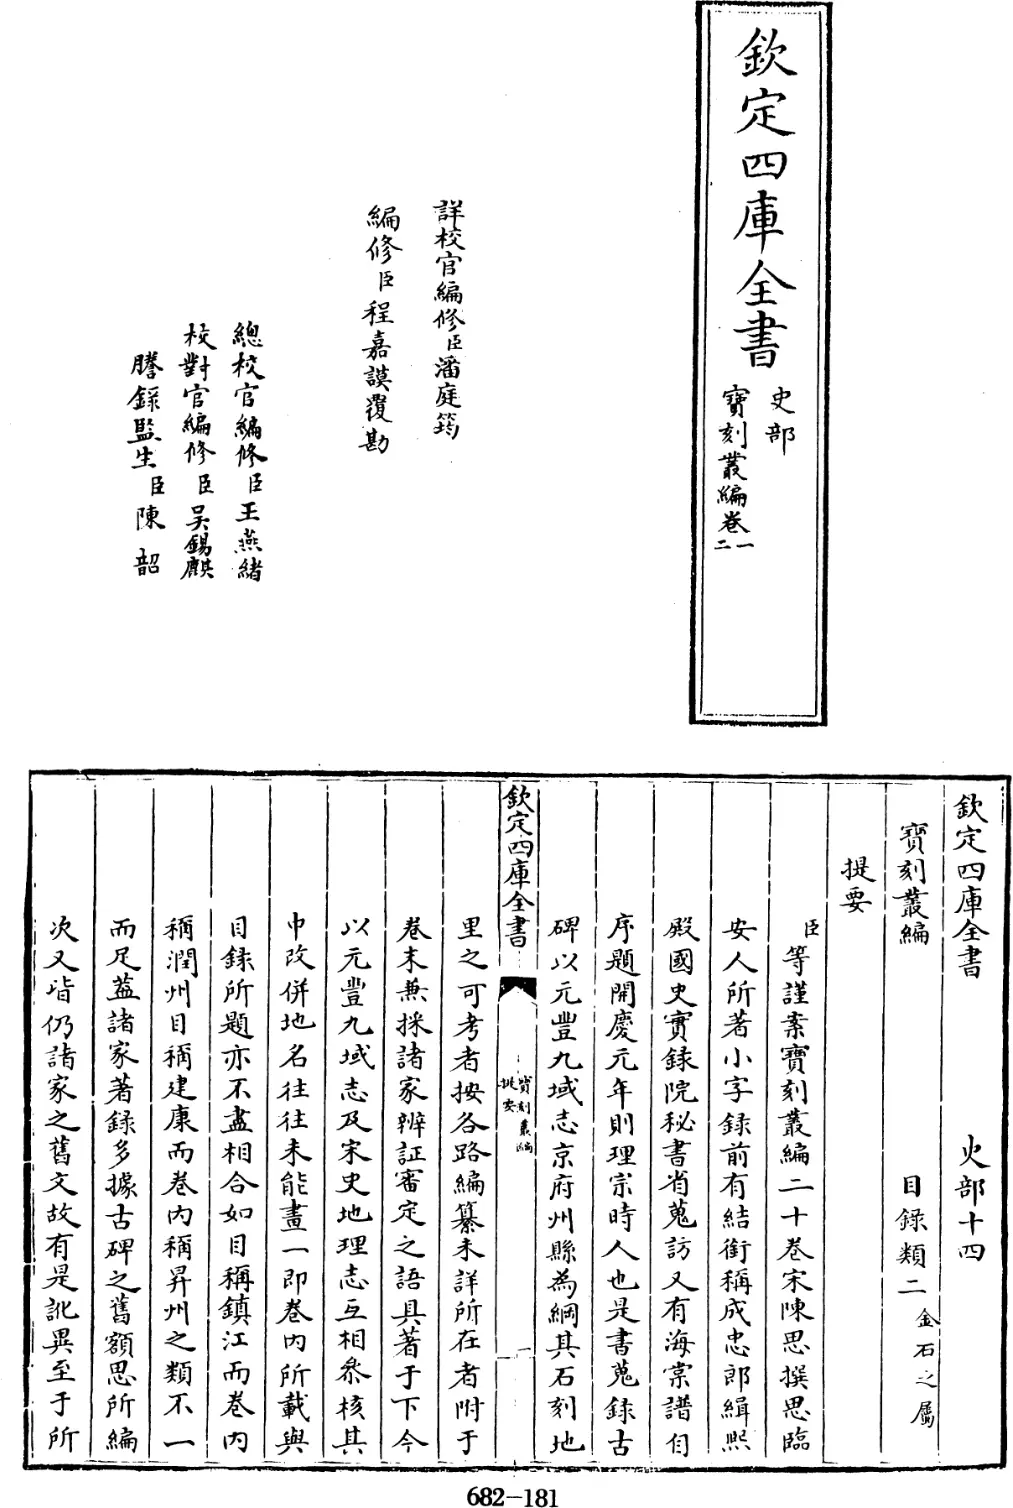 欽定四庫全書
史部
寶刻叢編卷一
二
詳校官編修臣潘庭筠
編修臣程嘉謨覆勘
總校官編修臣王燕緒
校對官編修臣吳錫麒
謄錄監生臣陳韶
欽定四庫全書 史部十四
寶刻叢編 目錄類二金石之屬
提要
臣等謹案寶刻叢編二十卷宋陳思撰思臨
安人所著小字錄前有結銜稱成忠郎緝熙
殿國史實錄院秘書省蒐訪又有海棠譜自
序題開慶元年則理宗時人也是書蒐錄古
碑以元豐九域志京府州縣為綱其石刻地
欽定四庫全書
寶刻叢編
提要
一
里之可考者按各路編纂未詳所在者附于
卷末兼採諸家辨証審定之語具著于下今
以元豐九域志及宋史地理志互相叅核其
中改併地名往往未能畫一即卷內所載與
目錄所題亦不盡相合如目稱鎮江而卷內
稱潤州目稱建康而卷內稱昇州之類不一
而足蓋諸家著錄多據古碑之舊額思所編
次又皆仍諸家之舊文故有是訛異至于所
682-181